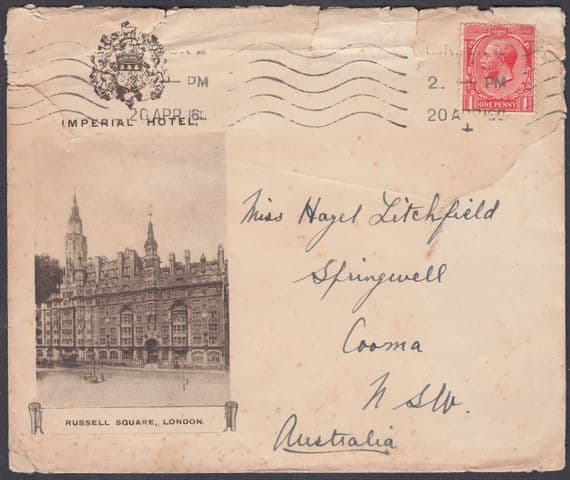 PM
20 APR 16
IMPERIAL HOTEL,
2. PM
20 AP
POSTAGE REVENUE
1 ONE PENNY 1
Miss Hazel Litchfield
Springwell
Cooma
N S.W.
Australia
RUSSELL SQUARE, LONDON.